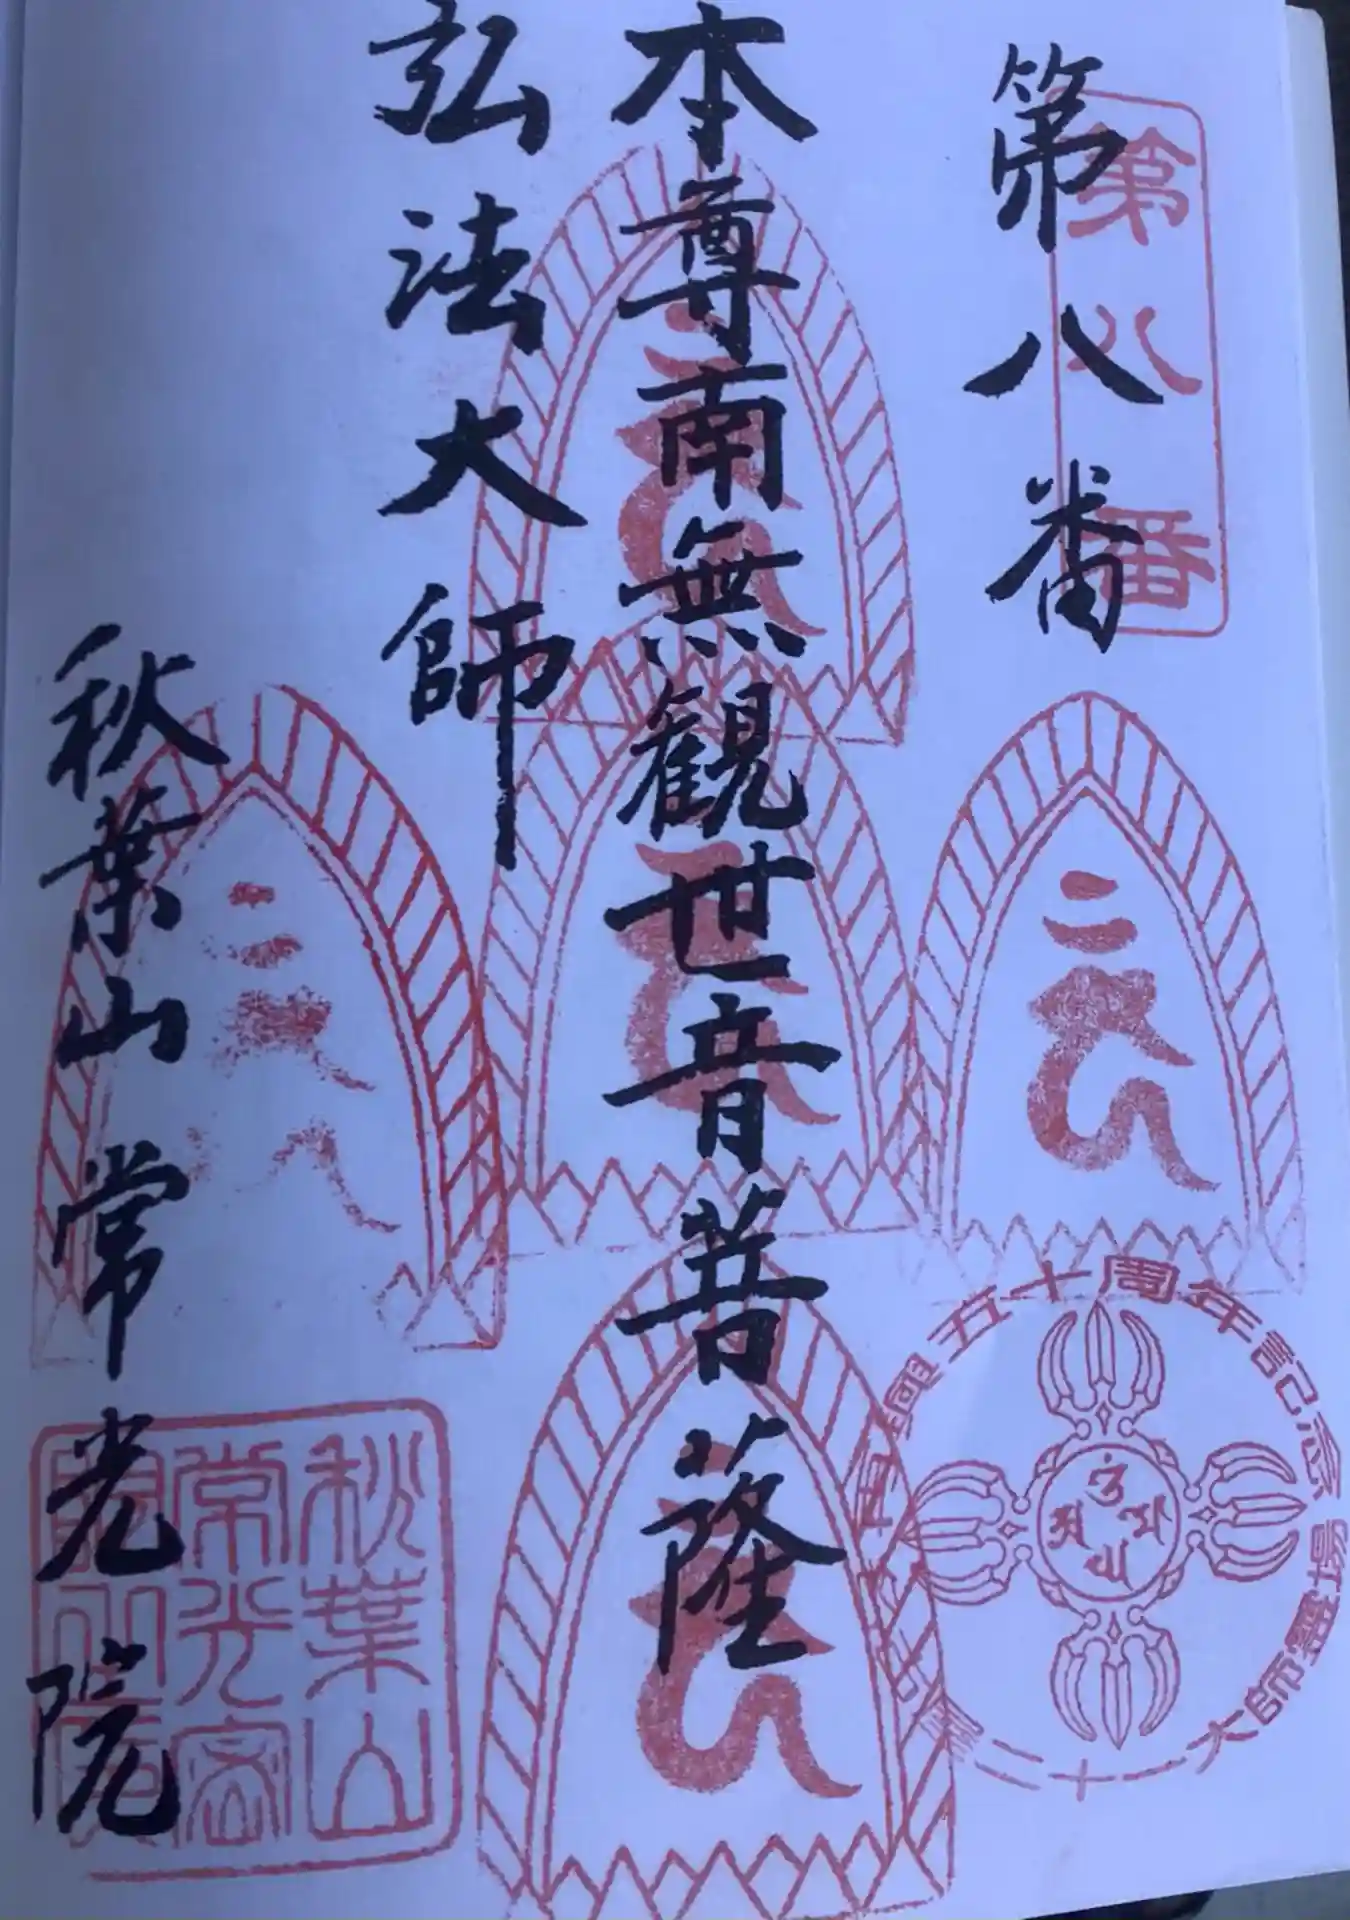 第八番
第八番
本尊南無観世音菩薩
弘法大師
秋葉山常光院
秋葉山
常光密
興五十周年記念
二十一大師霊場